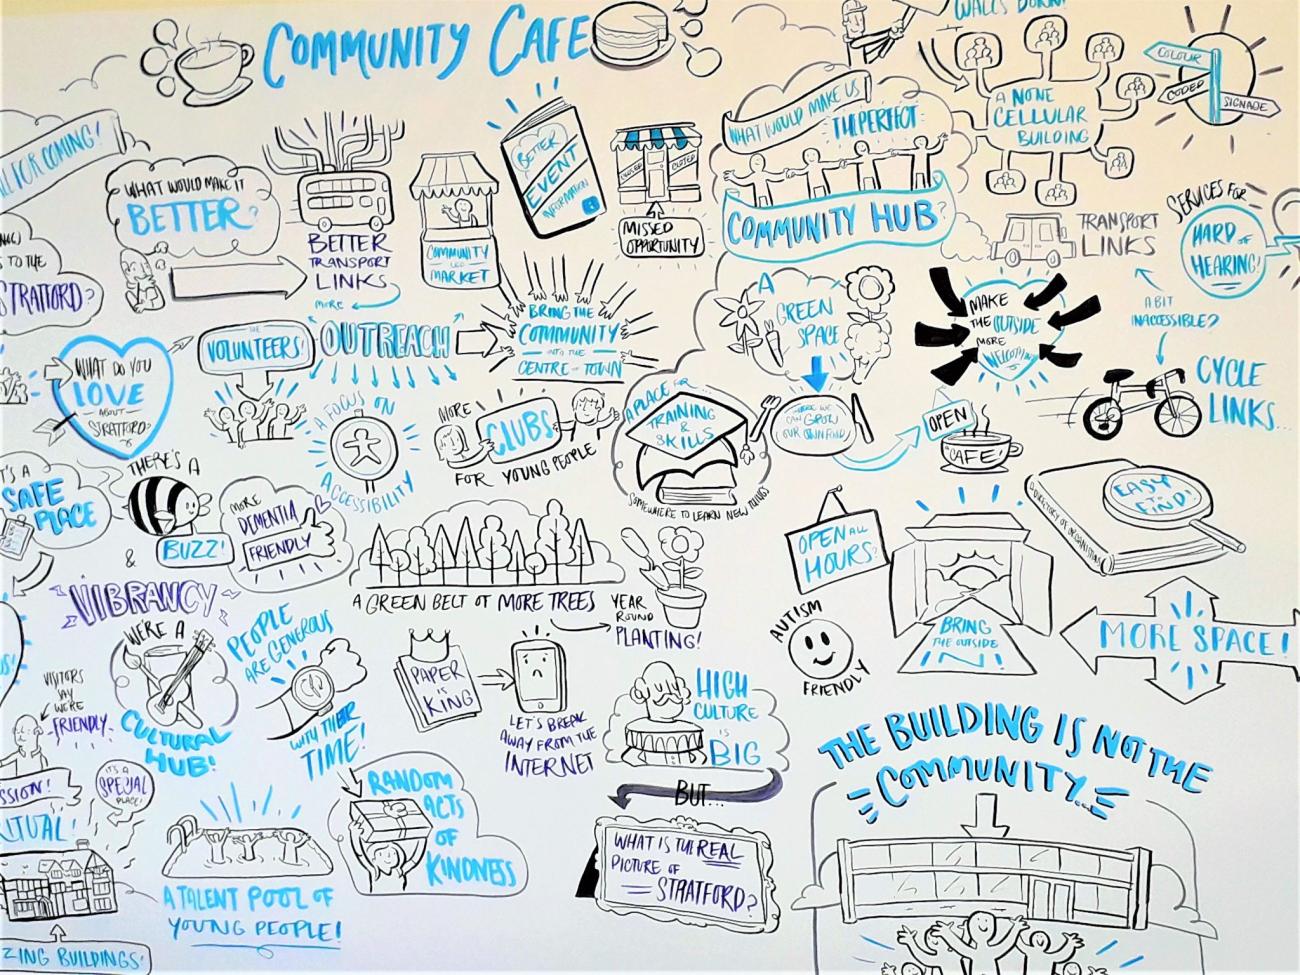 COMMUNITY CAFE
FOR COMING!
WHAT WOULD MAKE IT
BETTER?
BETTER
TRANSPORT
LINKS
MORE
COMMUNITY
LED
MARKET
BETTER
EVENT
INFORMATION
i
CLOSED
CLOSED
MISSED
OPPORTUNITY
WHAT WOULD MAKE US
THE PERFECT
COMMUNITY HUB?
WALLS DOWN!
A NONE
CELLULAR
BUILDING
COLOUR
CODED
SIGNAGE
TRANSPORT
LINKS
SERVICES FOR
HARD OF
HEARING!
A BIT
INACCESSIBLE?
TO THE
STRATFORD?
WHAT DO YOU
LOVE
ABOUT
STRATFORD?
THE
VOLUNTEERS!
OUTREACH
BRING THE
COMMUNITY
INTO THE
CENTRE OF TOWN
A
GREEN
SPACE
MAKE
THE OUTSIDE
MORE
WELCOMING
CYCLE
LINKS...
A FOCUS ON
ACCESSIBILITY
MORE
CLUBS
FOR YOUNG PEOPLE
A PLACE FOR
TRAINING
&
SKILLS
SOMEWHERE TO LEARN NEW THINGS
WHERE WE
CAN GROW
OUR OWN FOOD
OPEN
CAFE!
IT'S A
SAFE
PLACE
THERE'S A
BUZZ!
&
VIBRANCY
MORE
DEMENTIA
FRIENDLY
A GREEN BELT OF MORE TREES
YEAR
ROUND
PLANTING!
OPEN ALL
HOURS?
BRING
THE OUTSIDE
IN!
A DIRECTORY OF ORGANISATIONS
EASY
TO
FIND!
MORE SPACE!
AUTISM
FRIENDLY
VISITORS
SAY
WE'RE
FRIENDLY
WE'RE A
CULTURAL
HUB!
PEOPLE
ARE GENEROUS
WITH THEIR
TIME!
PAPER
IS
KING
LET'S BREAK
AWAY FROM THE
INTERNET
HIGH
CULTURE
IS
BIG
BUT...
WHAT IS THE REAL
PICTURE OF
STRATFORD?
THE BUILDING IS NOT THE
COMMUNITY...
IT'S A
SPECIAL
PLACE!
A TALENT POOL OF
YOUNG PEOPLE!
RANDOM
ACTS
OF
KINDNESS
BUILDINGS!